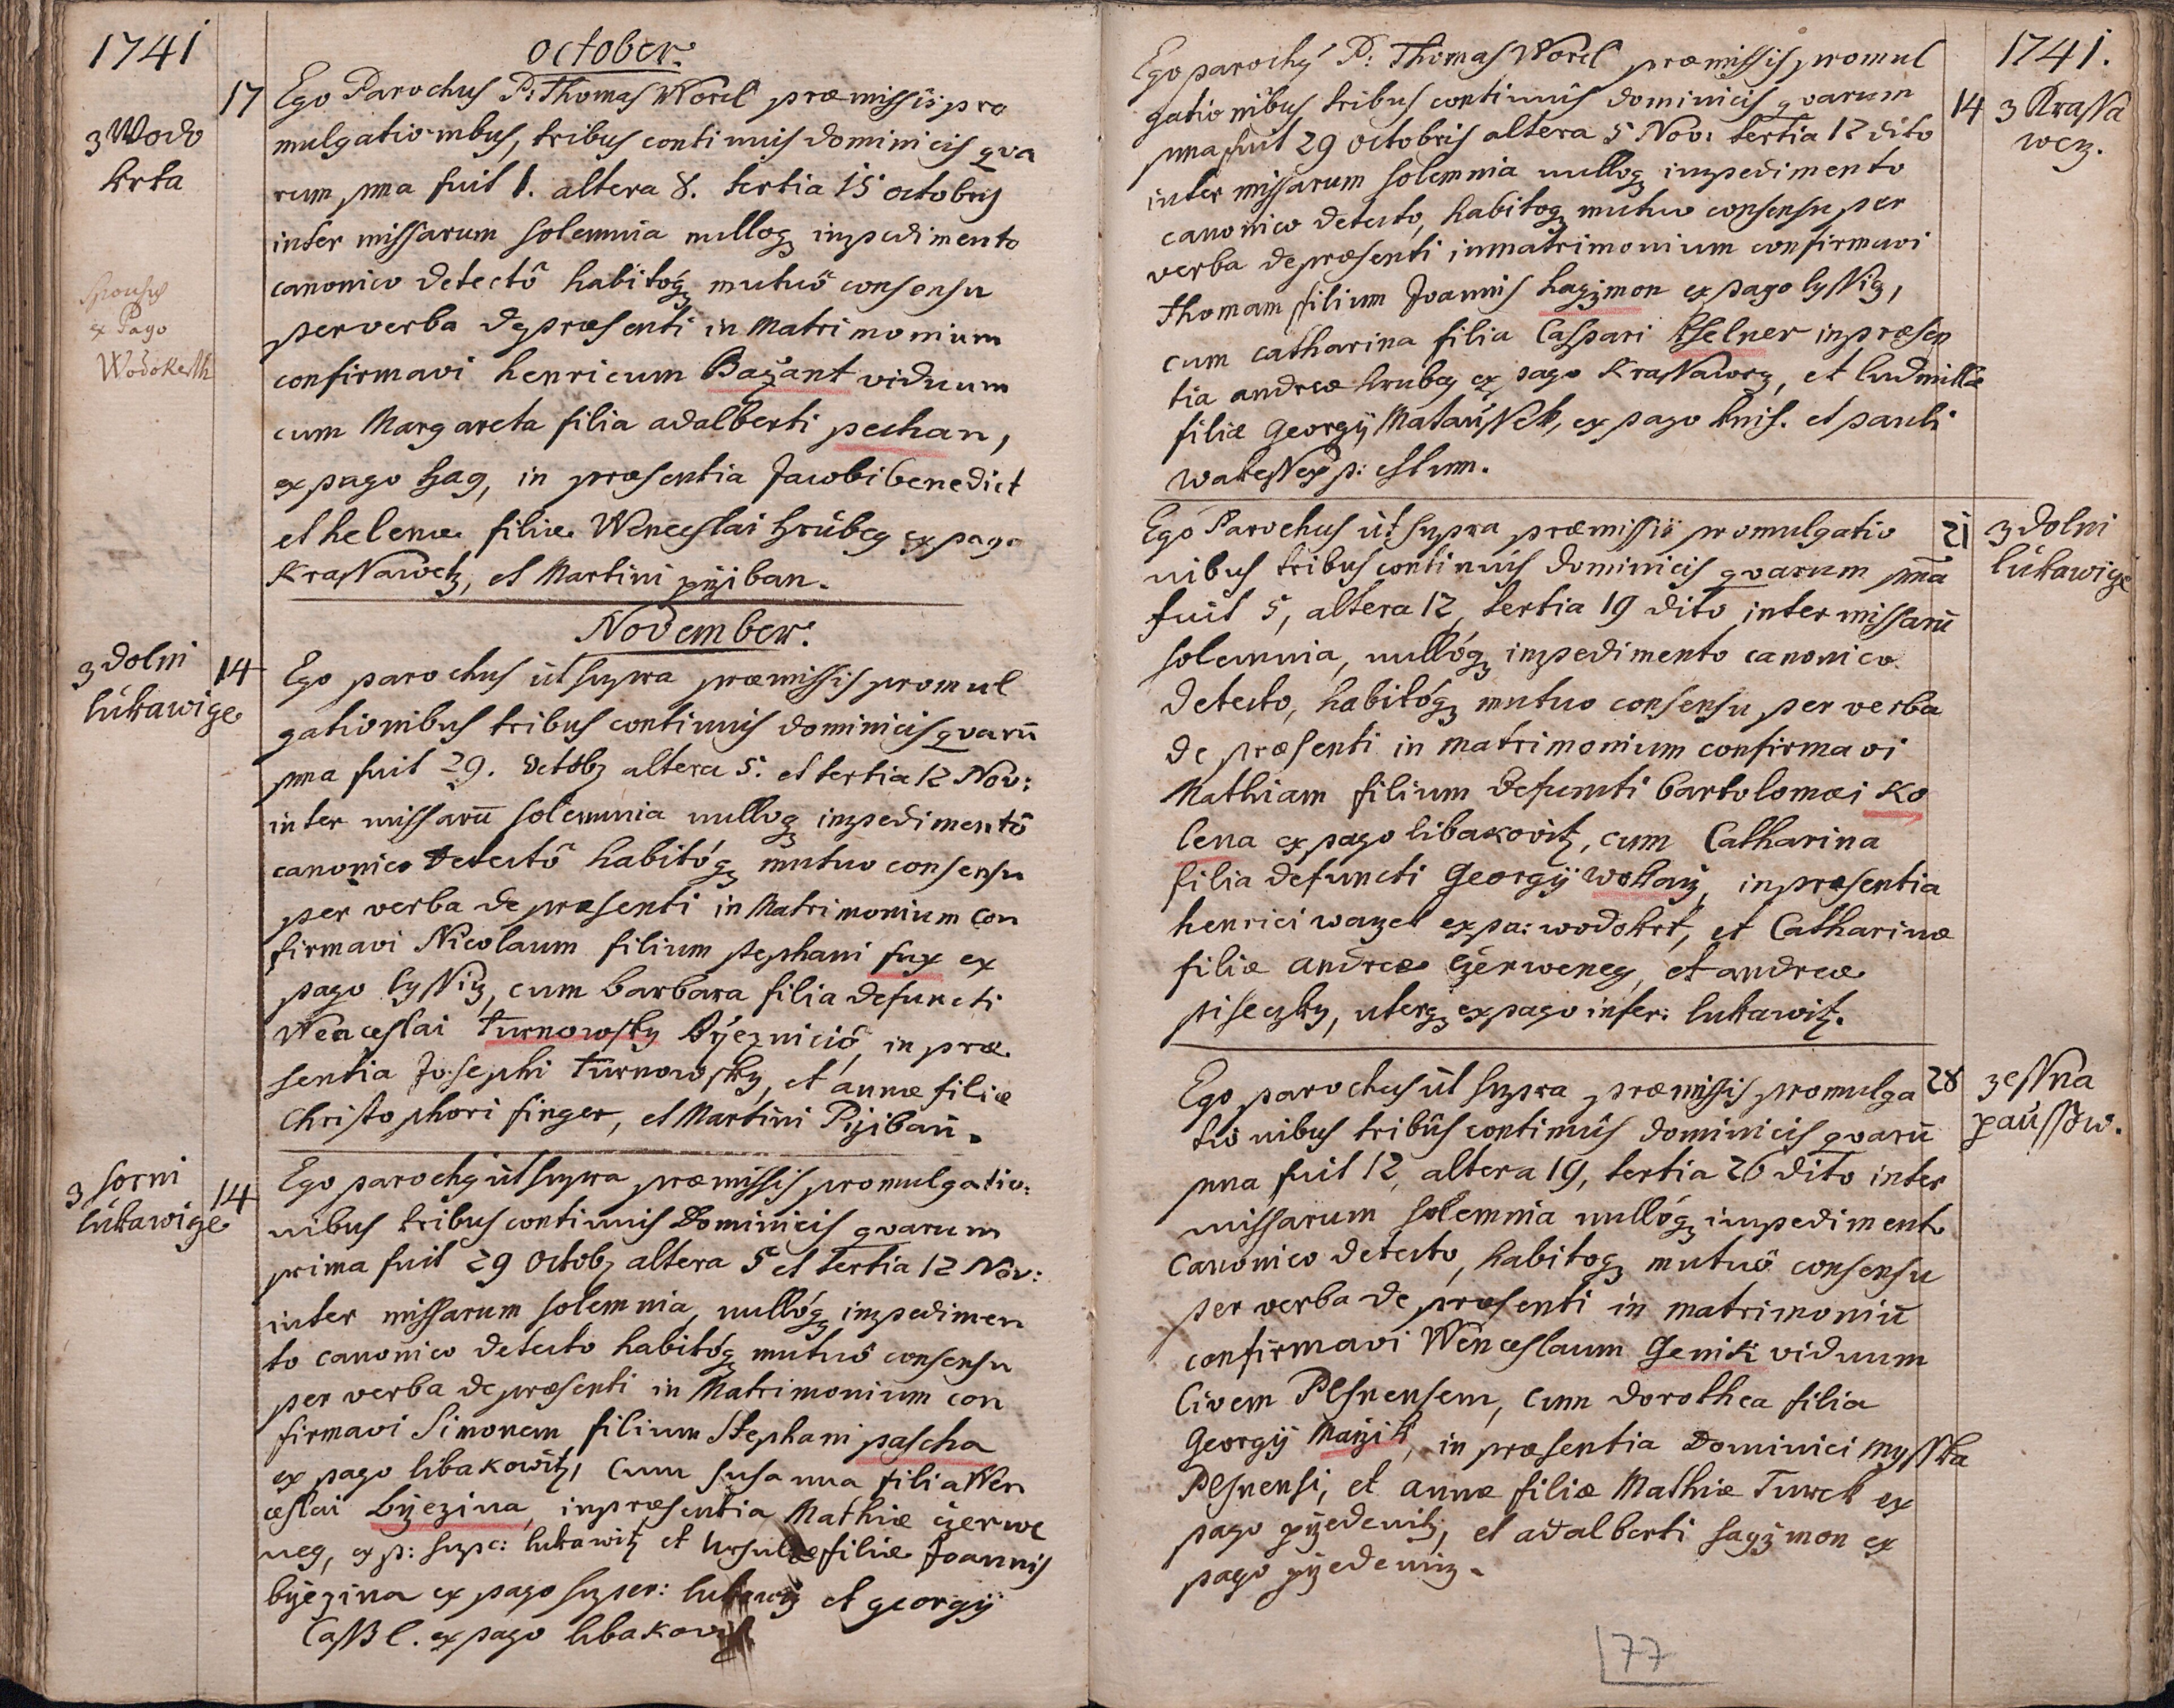 1741
October.
17
3 Wodo
krta
Sponsus
ex Pago
Wodokerth
Ego Parochus P: Thomas Worel præmissis pro
mulgationibus, tribus continuis dominicis qva
rum pma fuit 1. altera 8. tertia 15 octobris
inter missarum solemnia nulloq impedimento
canonico detectô habitóq mutuô consensu
per verba de præsenti in Matrimonium
confirmavi henricum Bažant viduum
cum Margareta filia adalberti pechan,
ex pago hág, in præsentia Jacobi benedict
et helenæ filiæ Wenceslai hrúbeg ex pago
Krassawetz, et Martini pijban.
November.
3 dolni
lúkawige
14
Ego parochus ut supra præmissis promul
gationibus tribus continuis dominicis qvarū
pma fuit 29. octobq altera 5. et tertia 12 Nov:
inter missarū solemnia nulloq impedimentô
canonico detectô habitóq mutuo consensu
per verba de præsenti in Matrimonium con
firmavi Nicolaum filium stephani fux ex
pago lyssiz, cum barbara filia defuncti
Wenceslai Turnowsky Ržezniciô, in præ
sentia Josephi Turnowsky, et annæ filiæ
Christophori finger, et Martini Pijibaň.
3 horni
lúkawige
14
Ego parochq ut supra præmissis promulgatio:
nibus tribus continuis Dominicis qvarum
prima fuit 29 Octobq altera 5 et tertia 12 Nov:
inter missarum solemnia, nullóq impedimen
to canonico detecto habitóq mutuô consensu
per verba de præsenti in Matrimonium con
firmavi Simonem filium Stephani pascha
ex pago libakowitz, cum susanna filia Wen
ceslai bijezina, in præsentia Mathiæ czerwe
neg, ex p: supe: lukawitz et Ursulæ filiæ Joannis
bijezina ex pago super: lukawiz et georgij
Cassl. ex pago libakowitz
1741.
14
3 Krassa
wcz.
Ego parochq P: Thomas Worel præmissis promul
gationibus tribus continuis dominicis qvarum
pma fuit 29 octobris altera 5 Nov: tertia 12 dito
inter missarum solemnia nulloq impedimento
canonico detecto, habitoq mutuo consensu per
verba de præsenti in matrimonium confirmavi
Thomam filium Joannis hagžmon ex pago lyssiz,
cum catharina filia Caspari kselner in præsen
tia andreæ hrubeg ex pago Krassawcz, et ludmillæ
filiæ georgij Mataussek, ex pago knih. et pauli
wakessex p: chlum.
21
3 dolni
lúkawige
Ego Parochus út supra præmissis promulgatio
nibus tribus continuis dominicis qvarum pma
fuit 5, altera 12, tertia 19 dito inter missarū
solemnia, nullóq impedimento canonico
detecto, habitóq mutuo consensu per verba
de præsenti in matrimonium confirmavi
Mathiam filium defuncti bartolomæi Ko
lena ex pago libakovitz, cum Catharina
filia defuncti Georgij wokaiz, in præsentia
henrici wazek ex pa: wodokrt, et Catharinæ
filiæ andreæ czerweneg, et andreæ
piseczky, uterq ex pago infer: lukawitz.
28
3 essna
paussow.
Ego parochus út supra præmissis promulga
tionibus tribús continuis dominicis qvarū
pma fuit 12, altera 19, tertia 26 dito inter
missarum solemnia nullóq impedimento
canonico detecto, habitoq mutuô consensu
per verba de præsenti in matrimoniū
confirmavi Wenceslaum Geniki viduum
Civem Plsnensem, cum dorothea filia
Georgij Mažik, in præsentia Dominici Mysska
Plsnensi, et annæ filiæ Mathiæ Turek ex
pago pijedenitz, et adalberti hagžmon ex
pago pijedeniz.
77